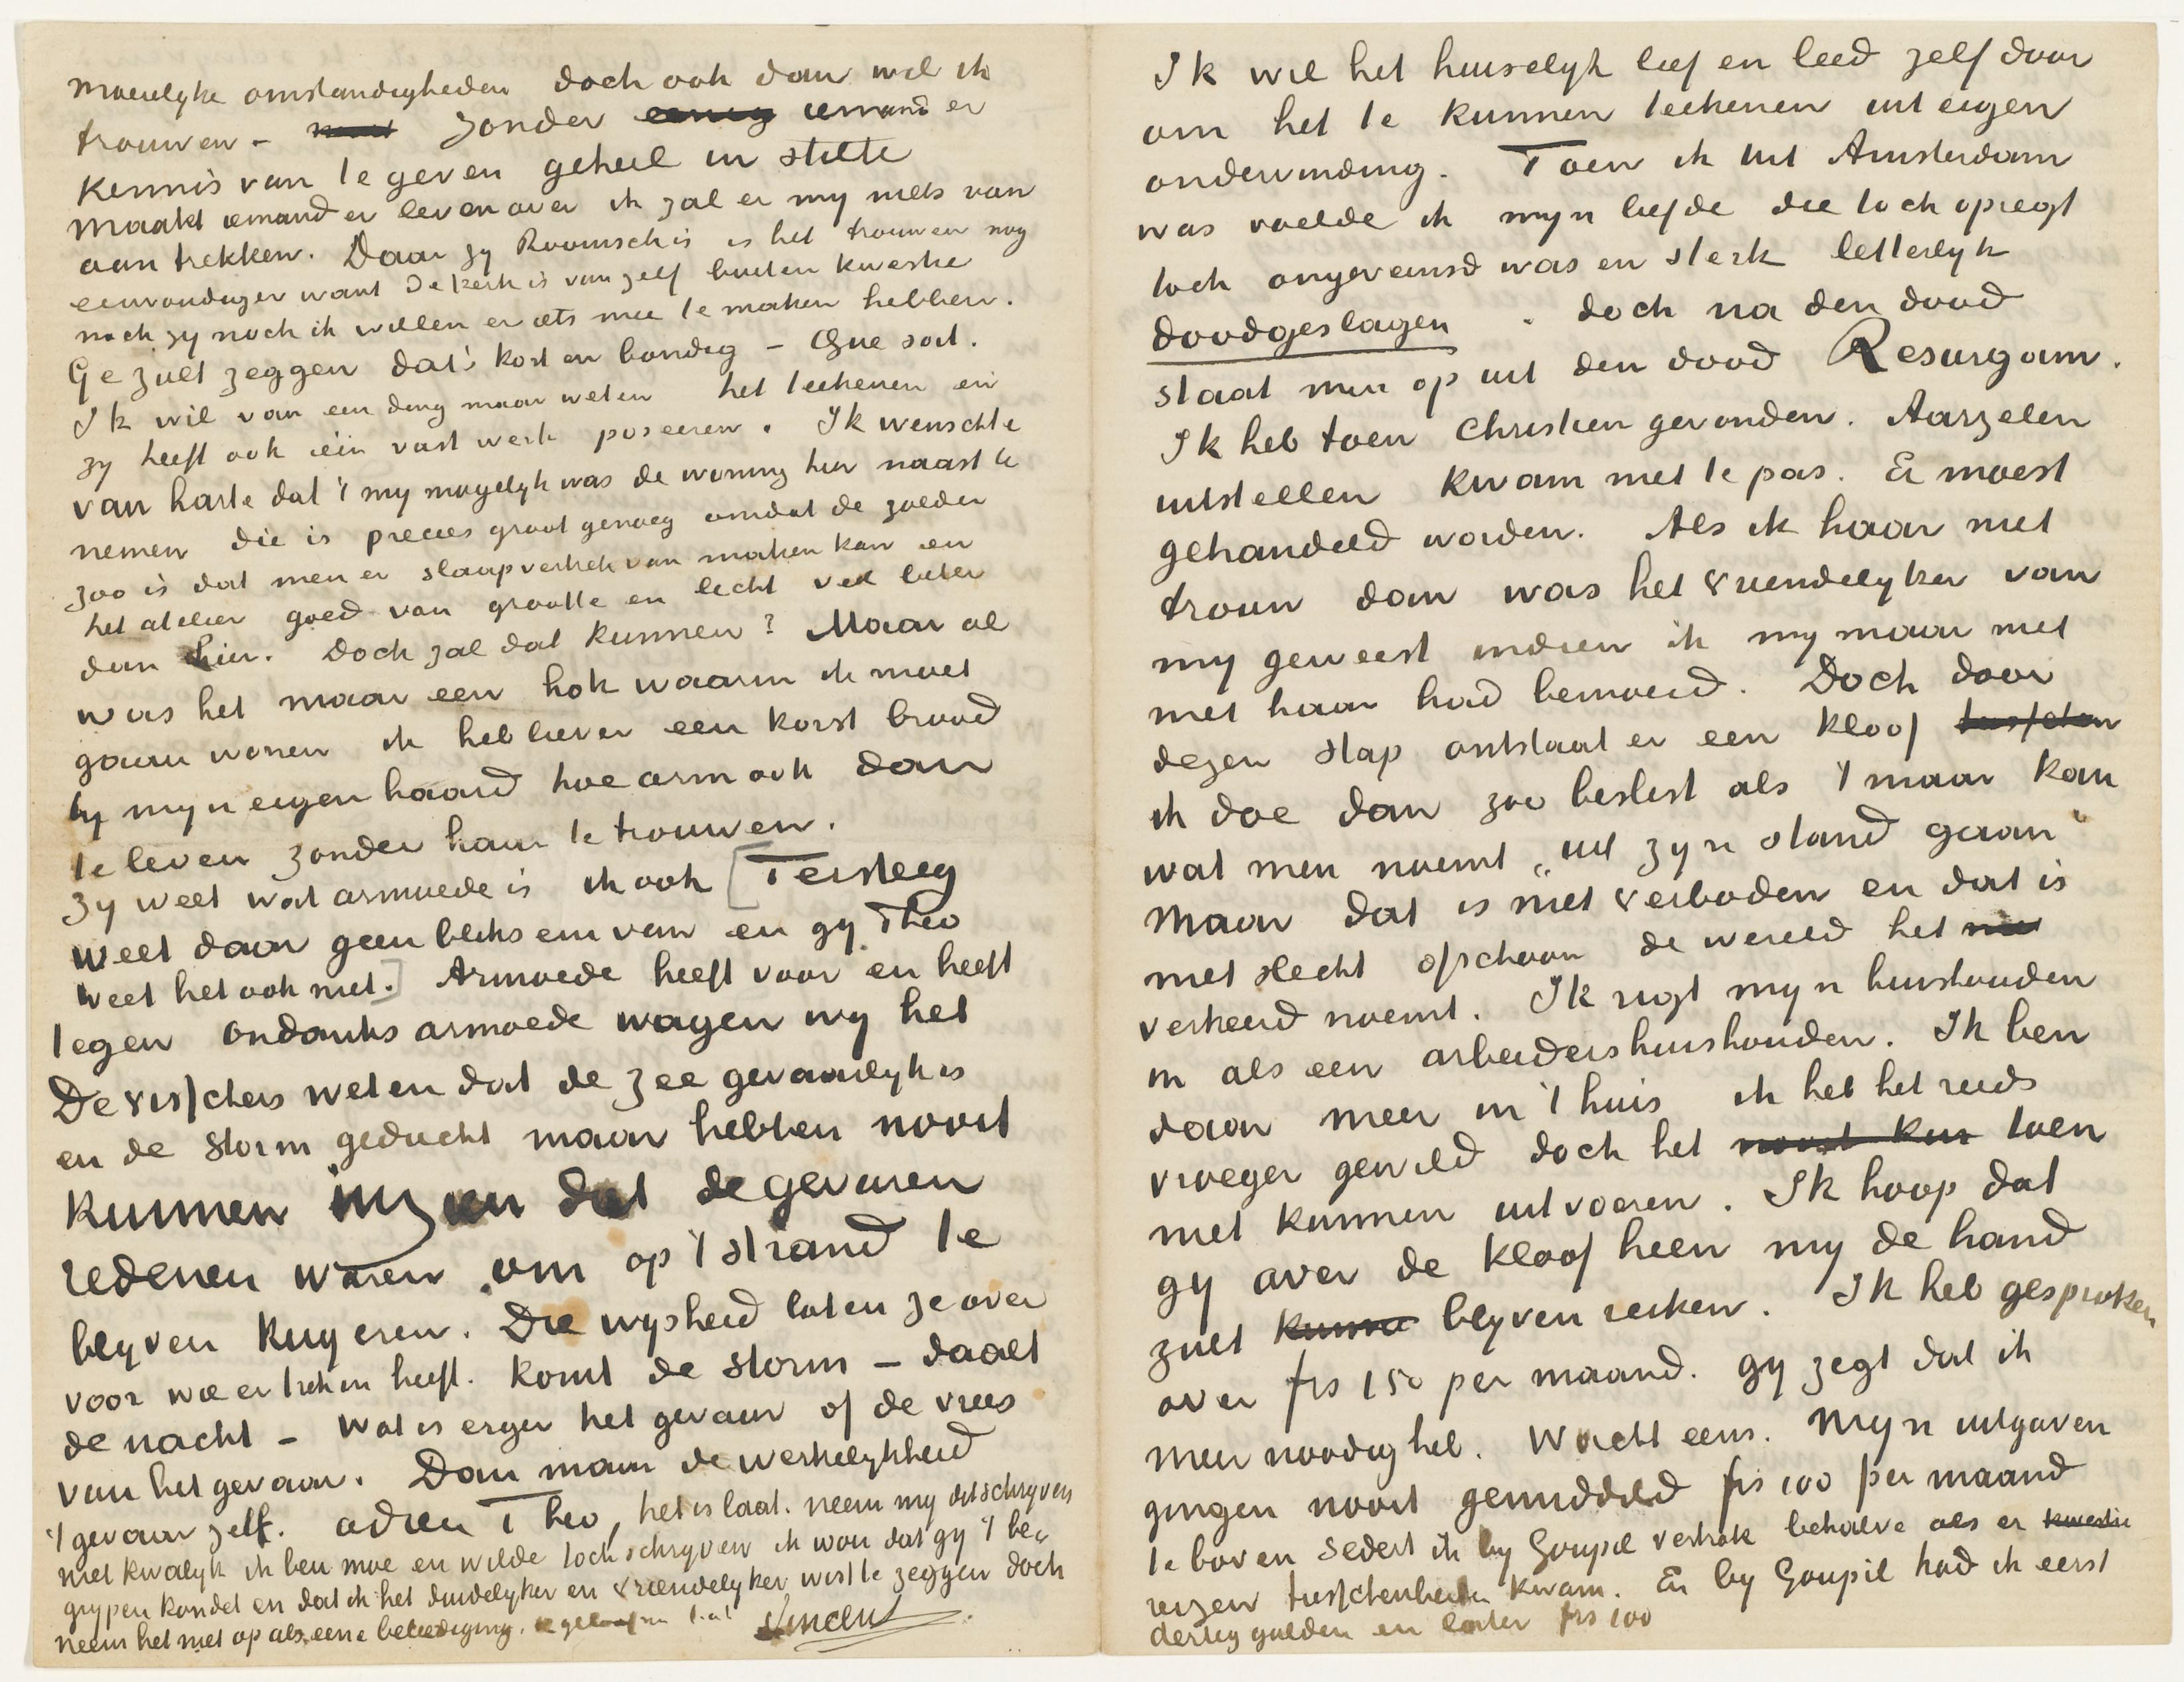 moeielyke omstandigheden doch ook dan wil ik
trouwen – zonder eenig iemand er
kennis van te geven geheel in stilte
maakt iemand er leven over ik zal er my niets van
aantrekken. Daar zy Roomsch is is het trouwen nog
eenvoudiger want de kerk is van zelf buiten kwestie
noch zy noch ik willen er iets mee te maken hebben.
Ge zult zeggen dat's kort en bondig – Que soit.
Ik wil van een ding maar weten het teekenen en
zy heeft ook één vast werk poseeren. Ik wenschte
van harte dat 't my mogelyk was de woning hier naast te
nemen die is precies groot genoeg omdat de zolder
zoo is dat men er slaapvertrek van maken kan en
het atelier goed van grootte en licht veel beter
dan hier. Doch zal dat kunnen? Maar al
was het maar een hok waarin ik moet
gaan wonen ik heb liever een korst brood
by myn eigen haard hoe arm ook dan
te leven zonder haar te trouwen.
Zy weet wat armoede is ik ook [Tersteeg
weet daar geen bliksem van en gy Theo
weet het ook niet.] Armoede heeft voor en heeft
tegen ondanks armoede wagen wy het
De visschers weten dat de zee gevaarlyk is
en de storm geducht maar hebben nooit
kunnen inzien dat de gevaren
redenen waren om op 't strand te
blyven kuyeren. Die wysheid laten ze over
voor wie er trek in heeft. Komt de storm – daalt
de nacht – wat is erger het gevaar of de vrees
van het gevaar. Dan maar de werkelykheid
't gevaar zelf. adieu Theo, het is laat. neem my dit schryven
niet kwalyk ik ben moe en wilde toch schryven ik wou dat gy 't be-
grypen kondet en dat ik het duidelyker en vriendelyker wist te zeggen doch
neem het niet op als eene beleediging. Vincent
Ik wil het huiselyk lief en leed zelf door
om het te kunnen teekenen uit eigen
ondervinding. Toen ik uit Amsterdam
was voelde ik myn liefde die toch opregt
toch ongeveinsd was en sterk letterlyk
doodgeslagen . doch na den dood
staat men op uit den dood Resurgam.
Ik heb toen Christien gevonden. Aarzelen
uitstellen kwam niet te pas. Er moest
gehandeld worden. Als ik haar niet
trouw dan was het vriendelyker van
my geweest indien ik my maar niet
met haar had bemoeid. Doch door
dezen stap ontstaat er een kloof tusschen
ik doe dan zoo beslist als 't maar kan
wat men noemt „uit zyn stand gaan"
maar dat is niet verboden en dat is
niet slecht ofschoon de wereld het
verkeerd noemt. Ik rigt myn huishouden
in als een arbeidershuishouden. Ik ben
daar meer in 't huis ik heb het reeds
vroeger gewild doch het nooit kun toen
niet kunnen uitvoeren. Ik hoop dat
gy over de kloof heen my de hand
zult kunne blyven reiken. Ik heb gesproken
over frs 150 per maand. gy zegt dat ik
meer noodig heb. Wacht eens. Myn uitgaven
gingen nooit gemiddeld frs 100 per maand
te boven sedert ik by Goupil vertrok behalve als er kwestie
reizen tusschenbeide kwam. En by Goupil had ik eerst
dertig gulden en later frs 100